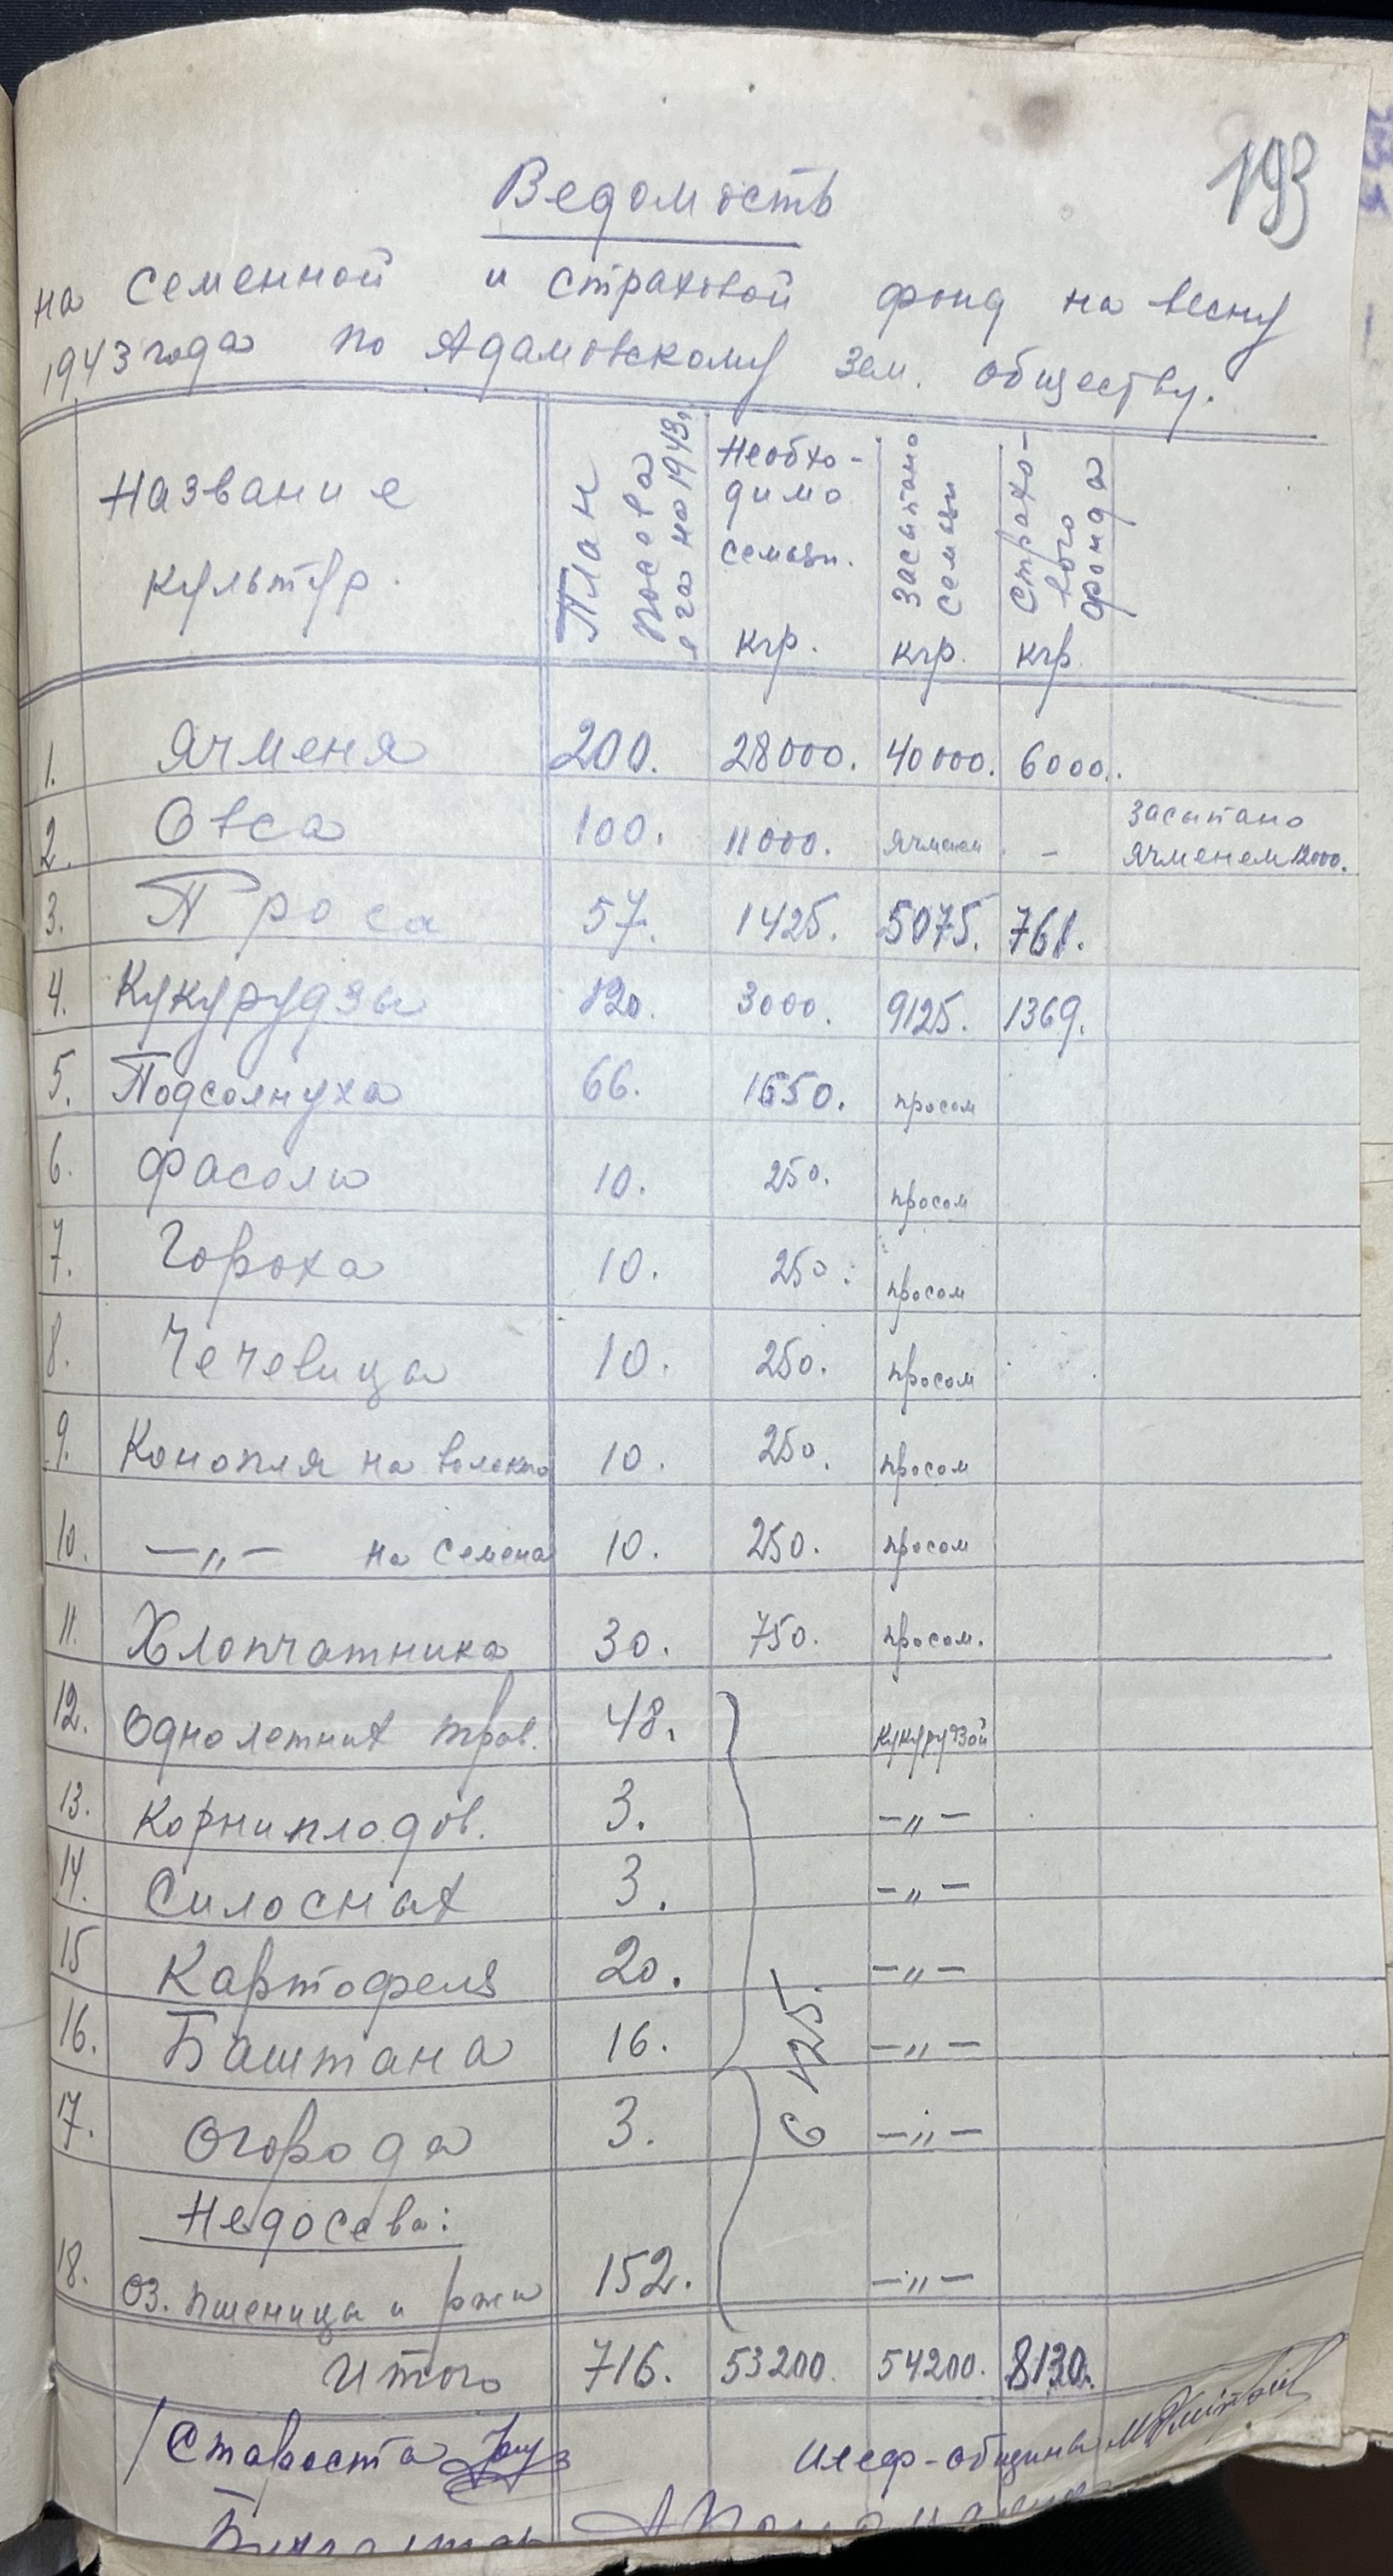 193
Ведомость
на семенной и страховой фонд на весну
1943 года по Адамовскому зем. обществу.
Название культур. План посева яга на 1943 г. Необхо-димо семян. кгр. Засыпано семян кгр. Страхо-вого фонда кгр.
1. Ячменя 200. 28000. 40000. 6000.
2. Овса 100. 11000. ячменем - засыпано ячменем 12000.
3. Проса 57. 1425. 5075. 761.
4. Кукурудзы 120. 3000. 9125. 1369.
5. Подсолнуха 66. 1650. просом
6. Фасоли 10. 250. просом
7. Гороха 10. 250. просом
8. Чечевица 10. 250. просом
9. Конопля на волокно 10. 250. просом
10. —„— на семена 10. 250. просом
11. Хлопчатника 30. 750. просом.
12. Однолетних трав. 48. кукурудзой
13. Корниплодов. 3. —„—
14. Силосных 3. —„—
15 Картофеля 20. —„—
16. Баштана 16. —„—
17. Огорода 3. —„—
6125.
Недосева:
18. Оз. пшеница и ржи 152. —„—
Итого 716. 53200. 54200. 8130.
Староста Шеф-общины
Бухгалтер